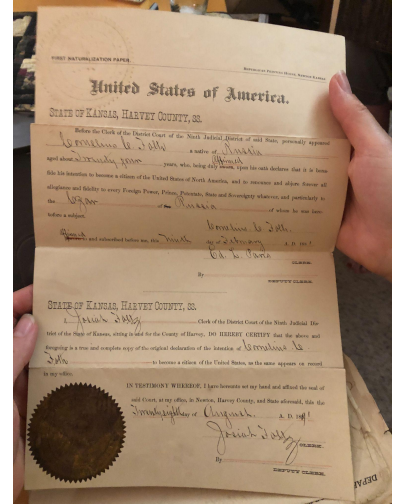 FIRST NATURALIZATION PAPER.
United States of America.
STATE OF KANSAS, HARVEY COUNTY, SS.
Before the Clerk of the District Court of the Ninth Judicial District of said State, personally appeared
Cornelius C. a native of Russia
aged about Twenty four years, who, being duly affirmed upon his oath declares that it is bona
fide his intention to become a citizen of the United States of North America, and to renounce and abjure forever all
allegiance and fidelity to every Foreign Power, Prince, Potentate, State and Sovereignty whatever, and particularly to
the Czar of Russia of whom he was here-
before a subject
Cornelius C.
and subscribed before me, this day of February A. D.
Ed. L. CLERK.
By
DEPUTY CLERK.
STATE OF KANSAS, HARVEY COUNTY, SS.
I, Josiah Clerk of the District Court of the Ninth Judicial Dis-
trict of the State of Kansas, sitting in and for the County of Harvey, DO HEREBY CERTIFY that the above and
foregoing is a true and complete copy of the original declaration of the intention of Cornelius C
to become a citizen of the United States, as the same appears on record
in my office.
IN TESTIMONY WHEREOF, I have hereunto set my hand and affixed the seal of
said Court, at my office, in Newton, Harvey County, and State aforesaid, this the
Twenty eighth day of August A. D.
Josiah CLERK.
By
DEPUTY CLERK.